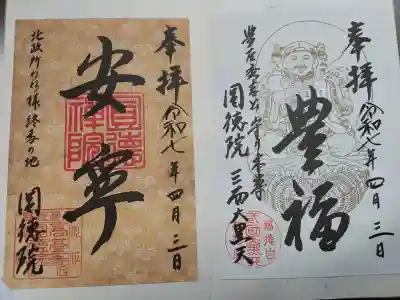 奉拝
令和七年四月三日
豊福
豊臣秀吉公守り本尊
三面大黒天
圓徳院
奉拝
令和七年四月三日
安寧
北政所ねね様終焉の地
圓徳院